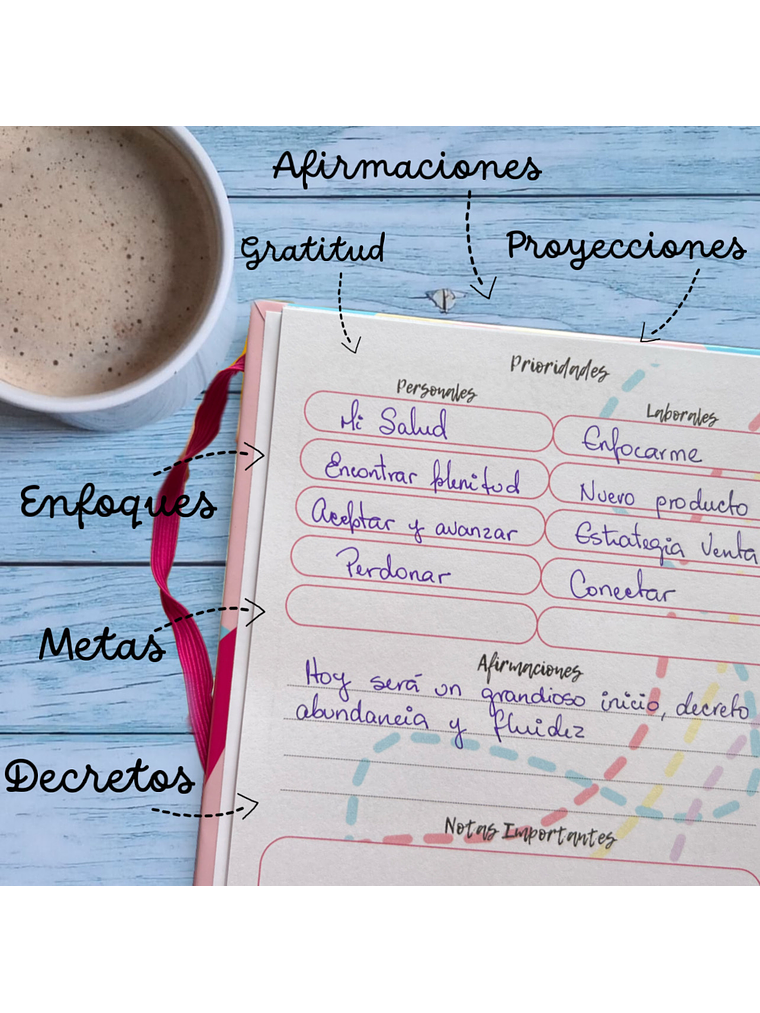 Afirmaciones
Gratitud
Proyecciones
Enfoques
Metas
Decretos
Prioridades
Personales
Mi Salud
Encontrar plenitud
Aceptar y avanzar
Perdonar
Laborales
Enfocarme
Nuevo producto
Estrategia Venta
Conectar
Afirmaciones
Hoy será un grandioso inicio, decreto
abundancia y fluidez
Notas Importantes